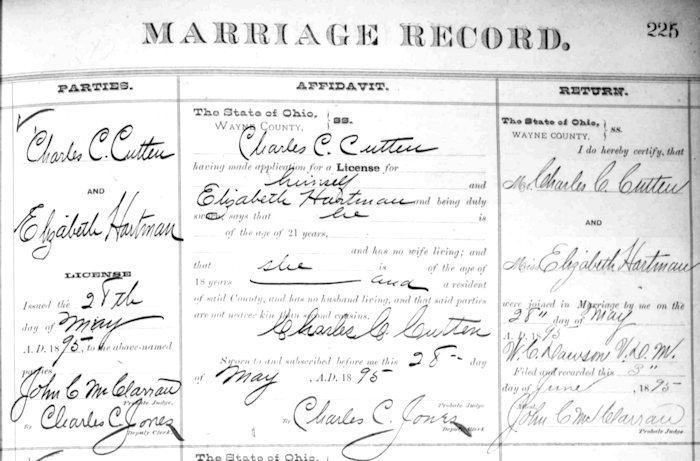 MARRIAGE RECORD.
225
PARTIES.
Charles C. Cutten
AND
Elizabeth Hartman
LICENSE
Issued the 28th
day of May
A. D. 1895, to the above-named
parties
John C McClarran
Probate Judge.
Charles C. Jones
Deputy Clerk
AFFIDAVIT.
The State of Ohio,
WAYNE COUNTY, ss.
Charles C. Cutten
having made application for a License for
himself and
Elizabeth Hartman and being duly
sworn says that he is
of the age of 21 years,
and has no wife living; and
that she is of the age of
18 years and a resident
of said County, and has no husband living, and that said parties
are not nearer kin than second cousins.
Charles C. Cutten
Sworn to and subscribed before me this 28" day
of May, A.D. 1895
Probate Judge
By Charles C. Jones
Deputy Clerk
The State of Ohio,
RETURN.
The State of Ohio,
WAYNE COUNTY, ss.
I do hereby certify, that
Mr. Charles C. Cutten
AND
Miss Elizabeth Hartman
were joined in Marriage by me on the
28" day of May
A. D. 95
W. C. Dawson V. D. M.
Filed and recorded this 3"
day of June 1895
John C McClarran
Probate Judge
The State of Ohio,